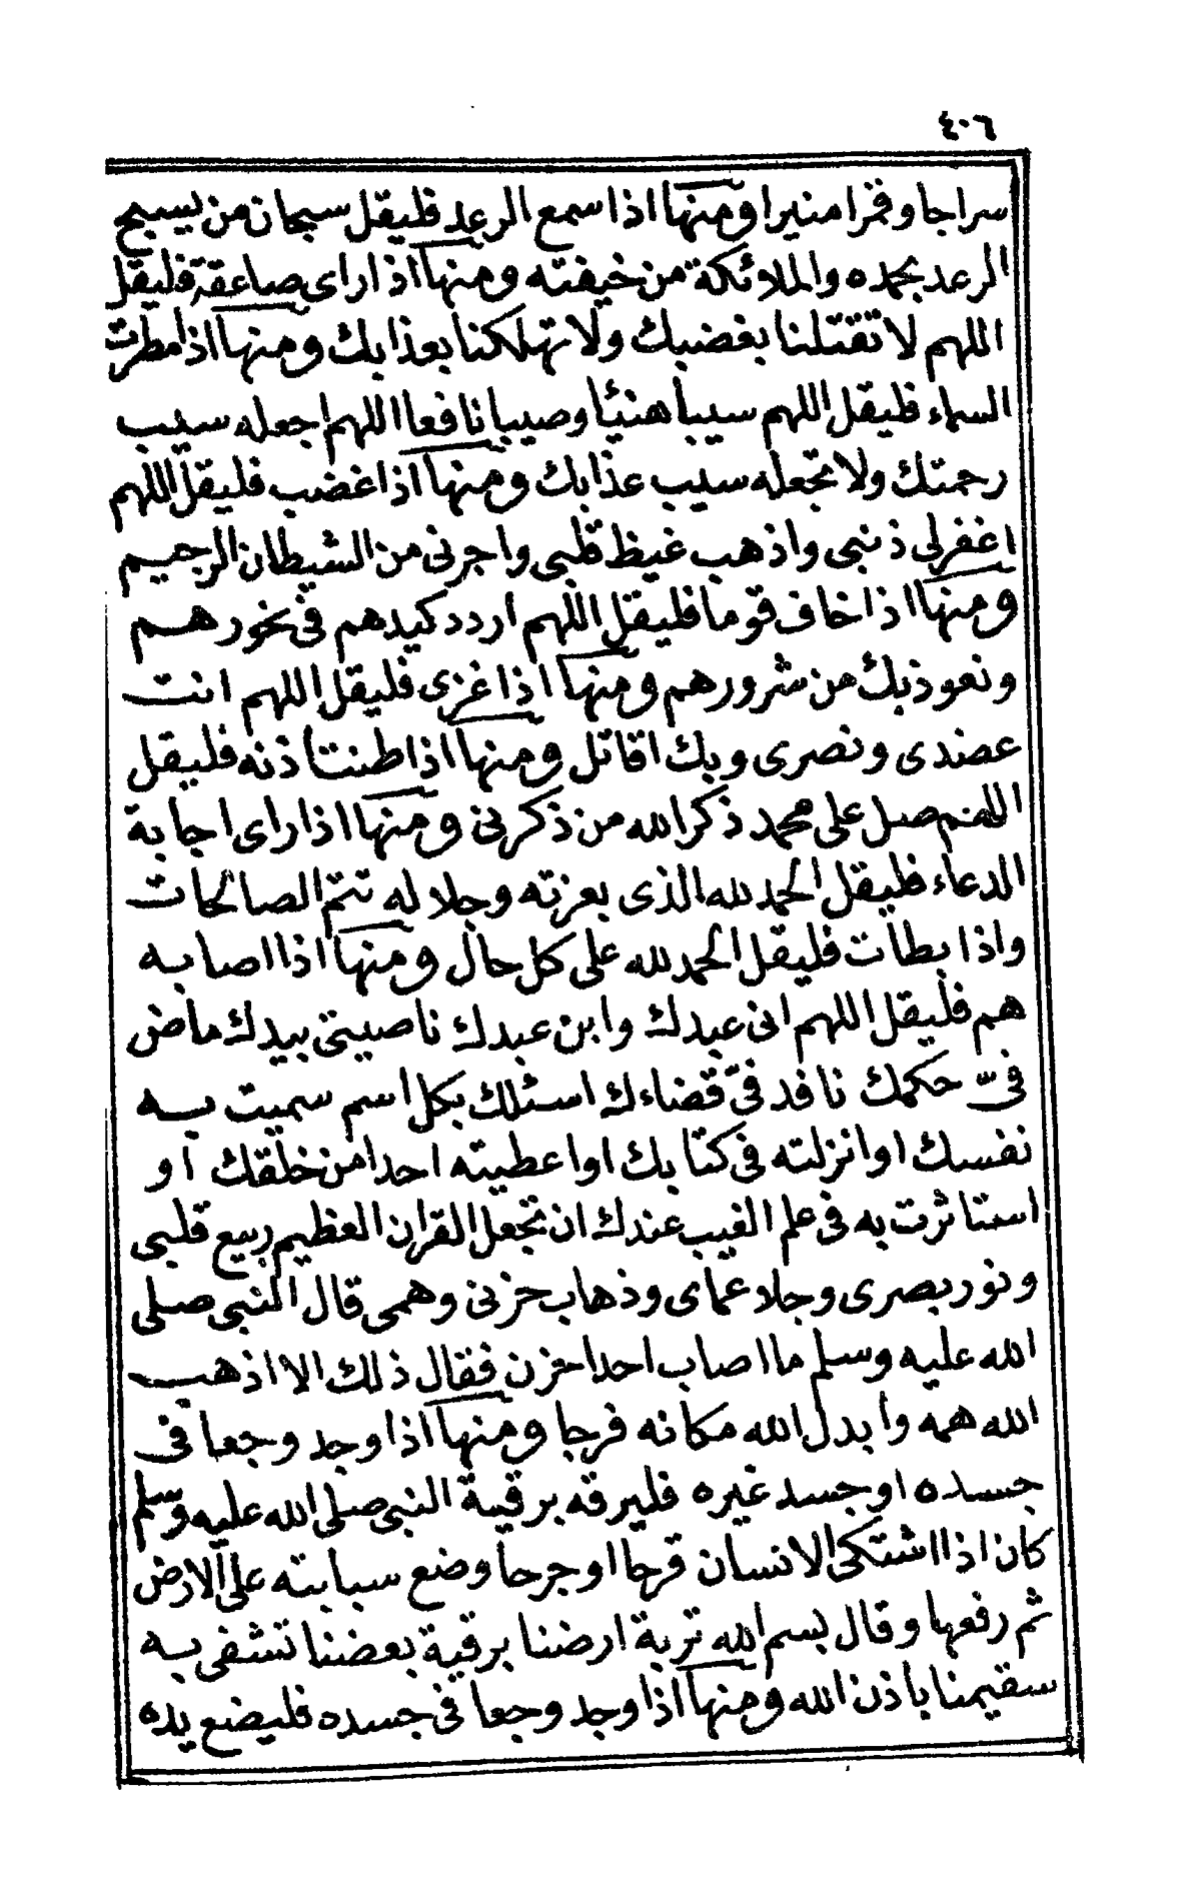 ٤٠٦
سراجا وقمرا منيرا ومنها اذا سمع الرعد فليقل سبحان من يسبح
الرعد بحمده والملائكة من خيفته ومنها اذا راى صاعقة فليقل
اللهم لا تقتلنا بغضبك ولا تهلكنا بعذابك ومنها اذا مطرت
السماء فليقل اللهم سيبا هنيئا وصيبا نافعا اللهم اجعله سيب
رحمتك ولا تجعله سيب عذابك ومنها اذا غضب فليقل اللهم
اغفرلى ذنبى واذهب غيظ قلبى واجرنى من الشيطان الرجيم
ومنها اذا خاف قوما فليقل اللهم اردد كيدهم فى نحورهم
ونعوذ بك من شرورهم ومنها اذا غزى فليقل اللهم انت
عضدى ونصرى وبك اقاتل ومنها اذا طنت اذنه فليقل
اللهم صل على محمد ذكر الله من ذكرنى ومنها اذا راى اجابة
الدعاء فليقل الحمد لله الذى بعزته وجلاله تتم الصالحات
واذا بطات فليقل الحمد لله على كل حال ومنها اذا اصابه
هم فليقل اللهم انى عبدك وابن عبدك ناصيتى بيدك ماض
فىّ حكمك نافد فىّ قضاءك اسئلك بكل اسم سميت به
نفسك او انزلته فى كتابك او اعطيته احدا من خلقك او
استاثرت به فى علم الغيب عندك ان تجعل القران العظيم ربيع قلبى
ونور بصرى وجلاء عماى وذهاب حزنى وهمى قال النبى صلى
الله عليه وسلم ما اصاب احدا حزن فقال ذلك الا اذهب
الله همه وابدل الله مكانه فرجا ومنها اذا وجد وجعا فى
جسده او جسد غيره فليرقه برقية النبى صلى الله عليه وسلم
كان اذا اشتكى الانسان قرحا او جرحا وضع سبابته على الارض
ثم رفعها وقال بسم الله تربة ارضنا برقية بعضنا تشفى به
سقيمنا باذن الله ومنها اذا وجد وجعا فى جسده فليضع يده